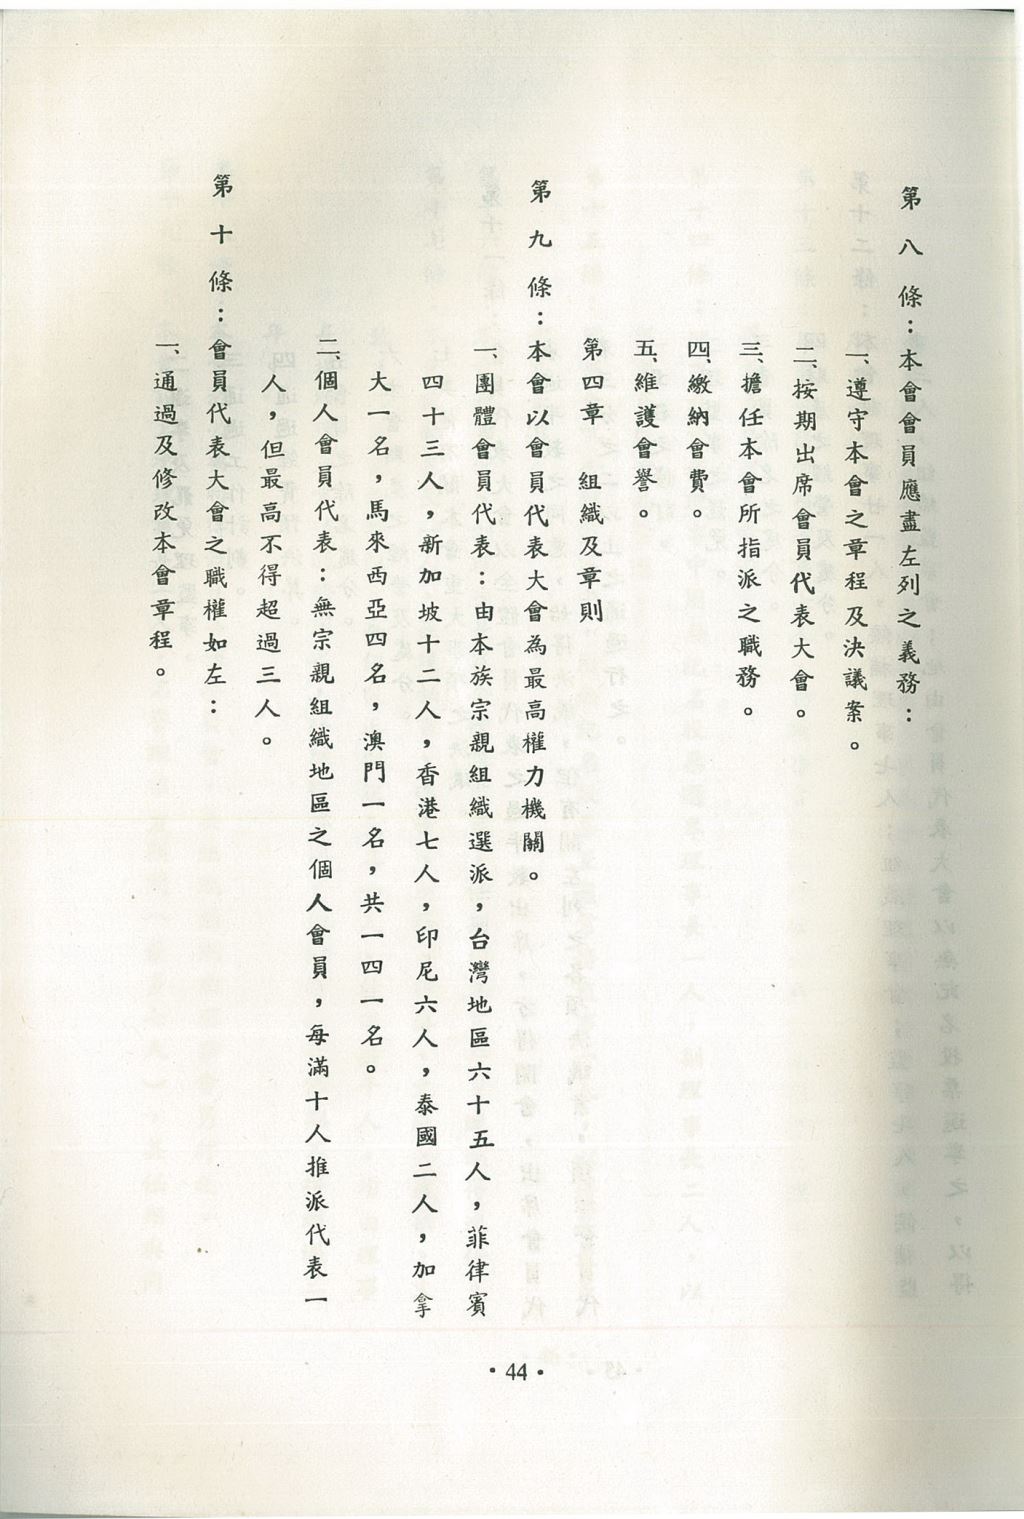 第八條：本會會員應盡左列之義務：
一、遵守本會之章程及決議案。
二、按期出席會員代表大會。
三、擔任本會所指派之職務。
四、繳納會費。
五、維護會譽。
第四章　組織及章則
第九條：本會以會員代表大會為最高權力機關。
一、團體會員代表：由本族宗親組織選派，台灣地區六十五人，菲律賓
四十三人，新加坡十二人，香港七人，印尼六人，泰國二人，加拿
大一名，馬來西亞四名，澳門一名，共一四一名。
二、個人會員代表：無宗親組織地區之個人會員，每滿十人推派代表一
人，但最高不得超過三人。
第十條：會員代表大會之職權如左：
一、通過及修改本會章程。
•44•